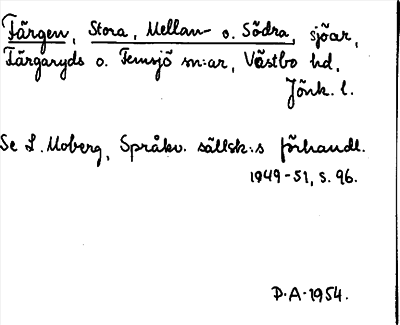 Färgen, Stora, Mellan- o. Södra, sjöar,
Färgaryds o. Femsjö sn:ar, Västbo hd,
Jönk. l.
Se L. Moberg, Språkv. sällsk:s förhandl.
1949-51, s. 96.
D.A. 1954.